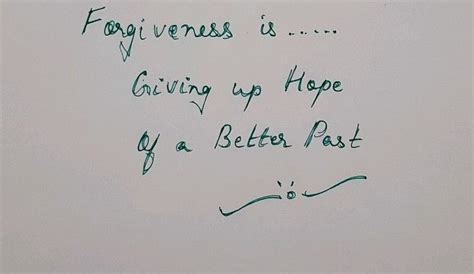 Forgiveness is .....
Giving up Hope
Of a Better Past